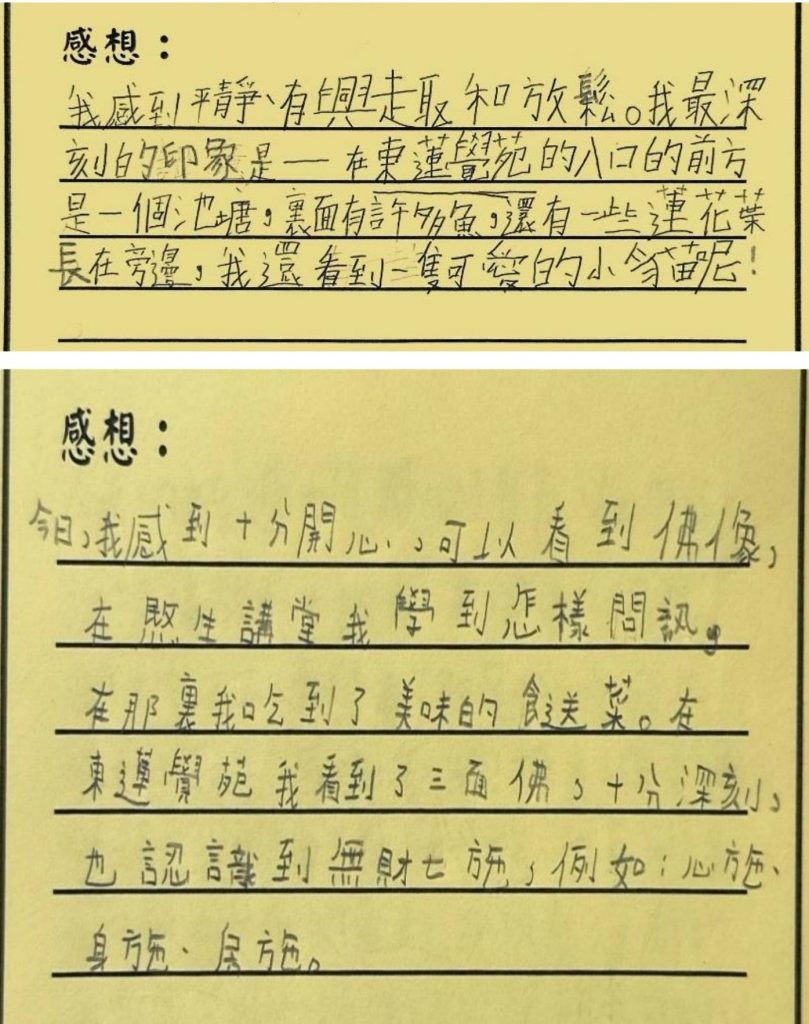 感想：
我感到平靜、有興趣和放鬆。我最深
刻的印象是一在東蓮覺苑的入口的前方
是一個池塘，裏面有許多魚，還有一些蓮花葉
長在旁邊，我還看到一隻可愛的小貓呢！
感想：
今日，我感到十分開心，可以看到佛像，
在愍生講堂我學到怎樣問訊。
在那裏我吃到了美味的 菜。在
東蓮覺苑我看到了三面佛，十分深刻，
也認識到無財七施，例如：心施、
身施、 施。